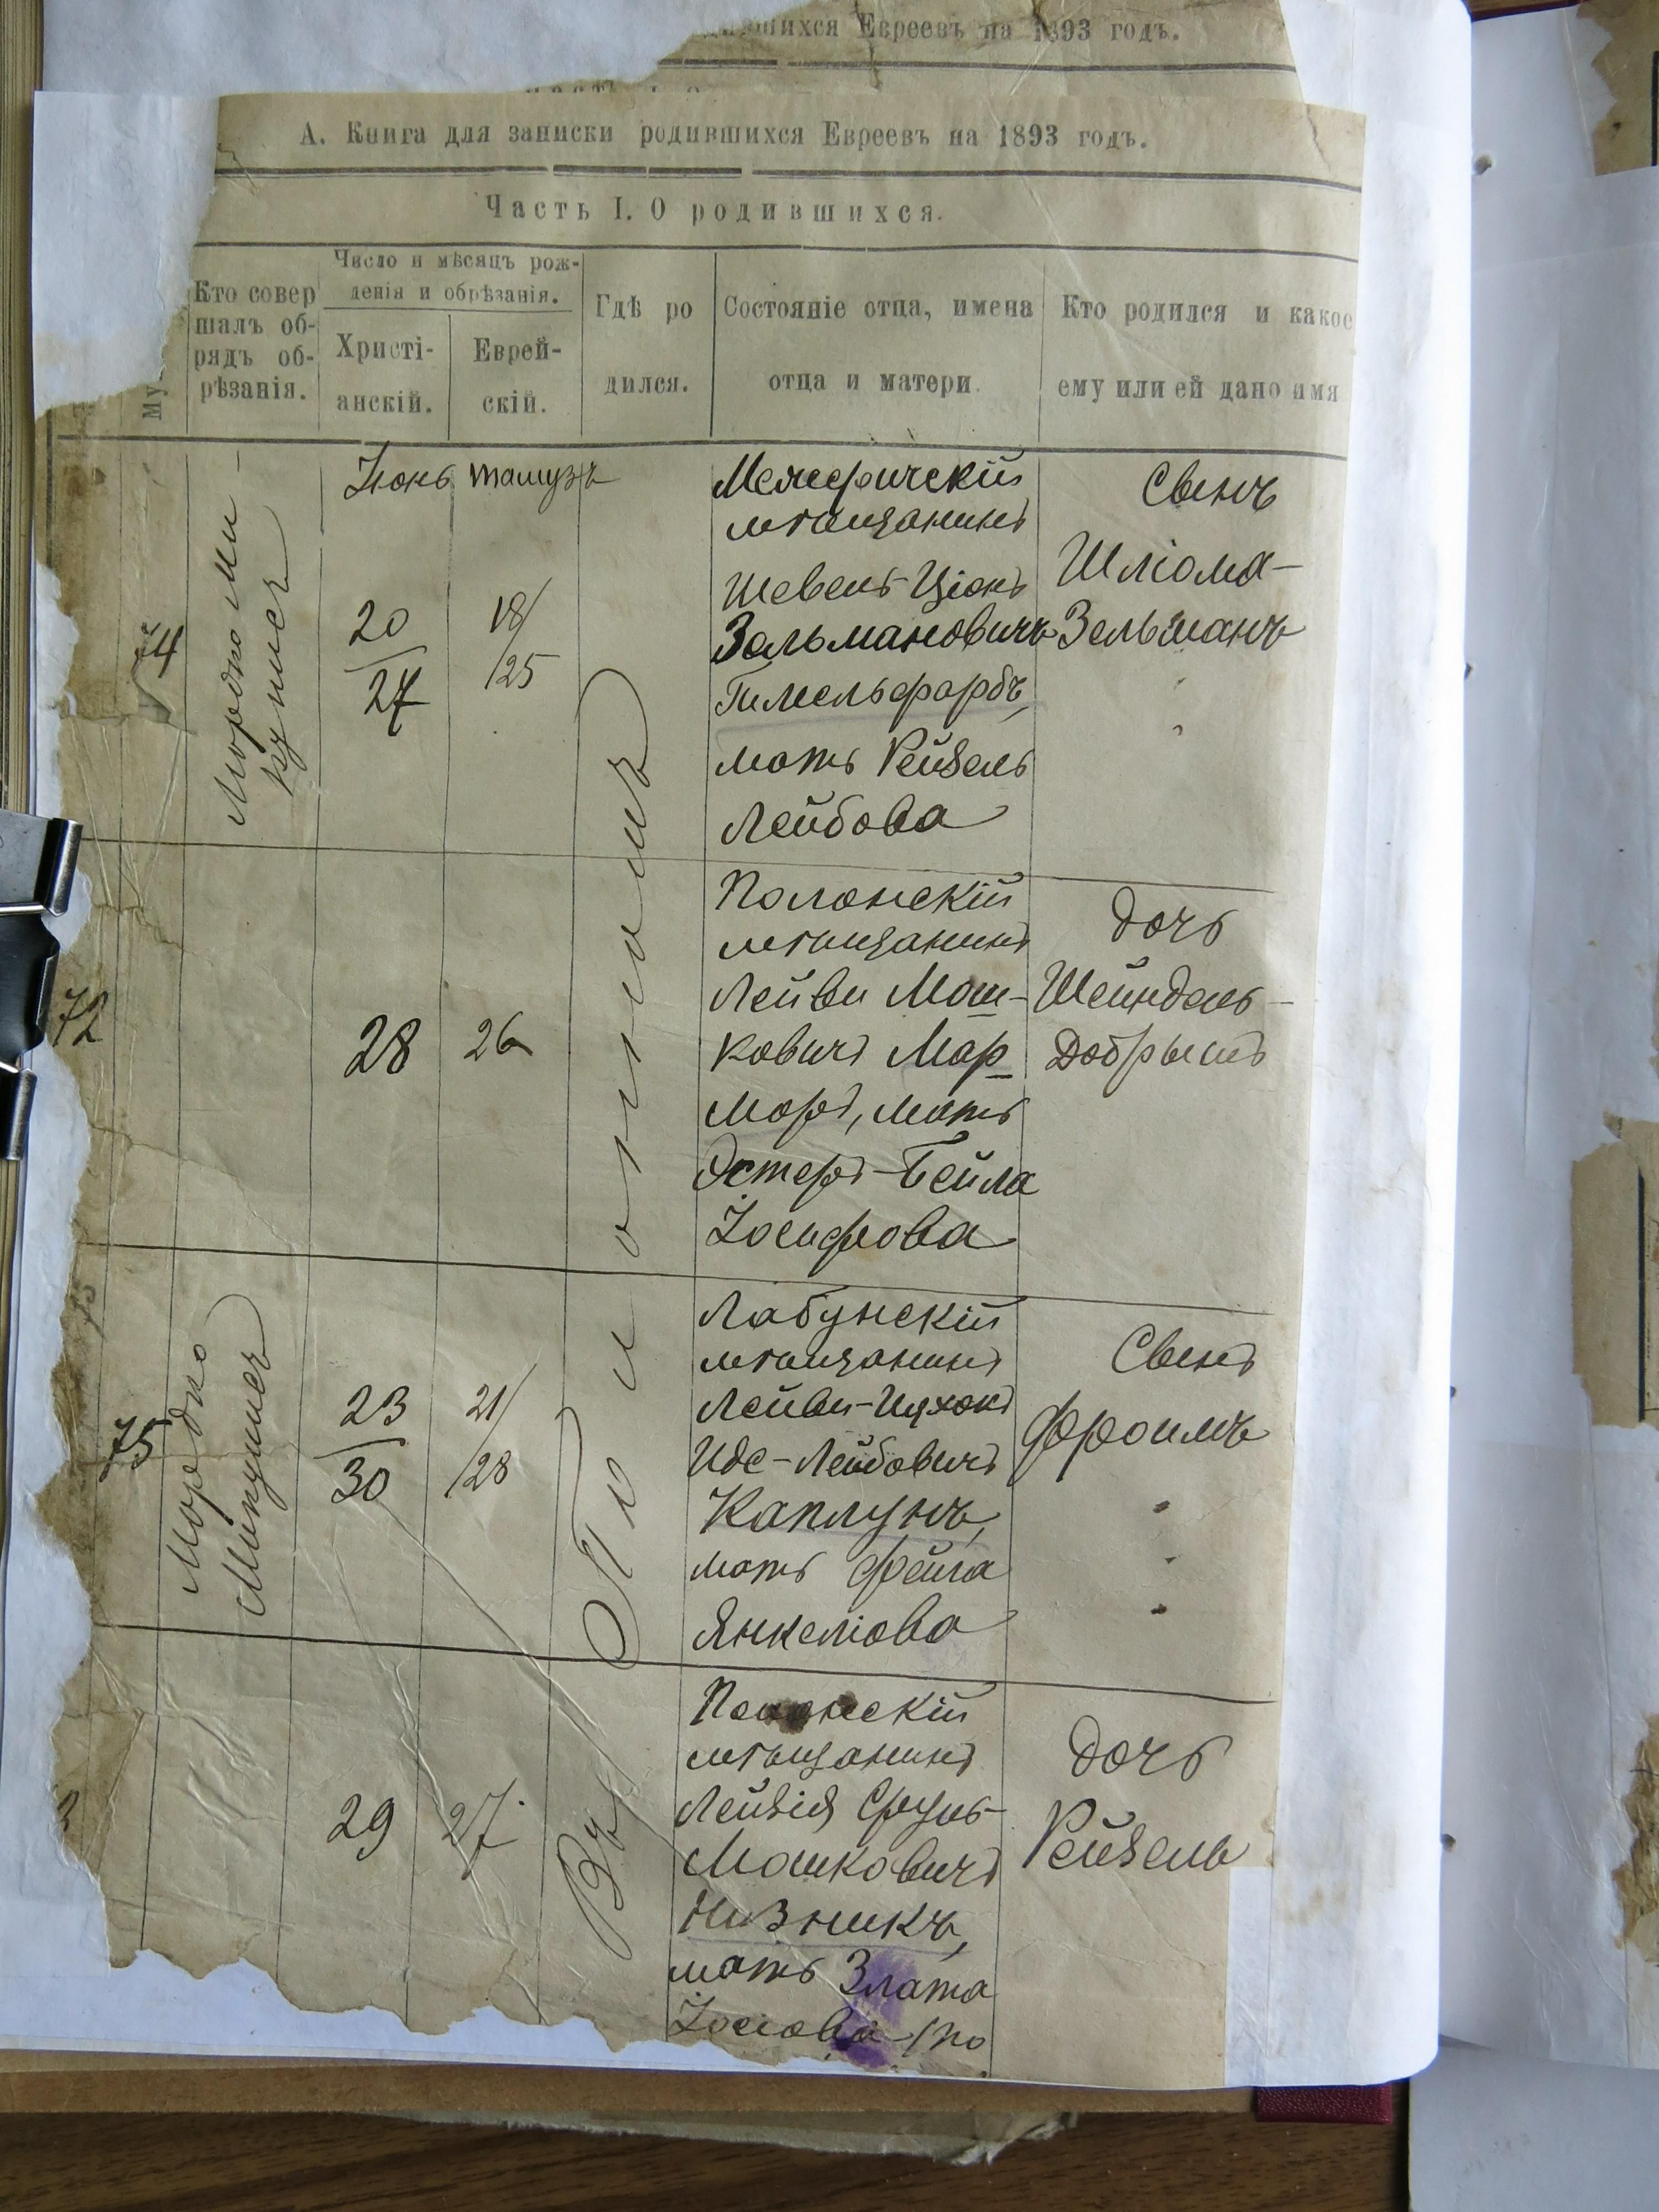 дившихся Евреевъ на 1893 годъ.
А. Книга для записки родившихся Евреевъ на 1893 годъ.
Часть I. О родившихся.
Му
Кто совер
шалъ об-
рядъ об-
рѣзанія.
Число и мѣсяцъ рож-
денія и обрѣзанія.
Христі-
анскій.
Еврей-
скій.
Гдѣ ро
дился.
Состояніе отца, имена
отца и матери.
Кто родился и какое
ему или ей дано имя
74
Мордко Ми-
кунисъ
Іюнь
20
27
тамузъ
18/
/25
Въ г. Полонномъ
мѣщанинъ
Шевель-Ціонъ
Зельмановичъ
Гимельфарбъ,
мать Рейзель
Лейбова
Сынъ
Шліома-
Зельманъ
72
28
26
Полонскій
мѣщанинъ
Лейви Мош-
ковичъ Мар
моръ, мать
Эстеръ-Бейла
Іосифова
Дочь
Шейндель-
Добрышъ
75
Мордко
Микунисъ
23
30
21/
/28
Лабунскій
мѣщанинъ
Лейви-Ицхокъ
Иде-Лейбовичъ
Каплунъ,
мать Фейга
Янкеліова
Сынъ
Фроимъ
29
27
Полонскій
мѣщанинъ
Сруль-
Мошковичъ
Низникъ,
мать Злата
Іосіова (по
Дочь
Рейзель